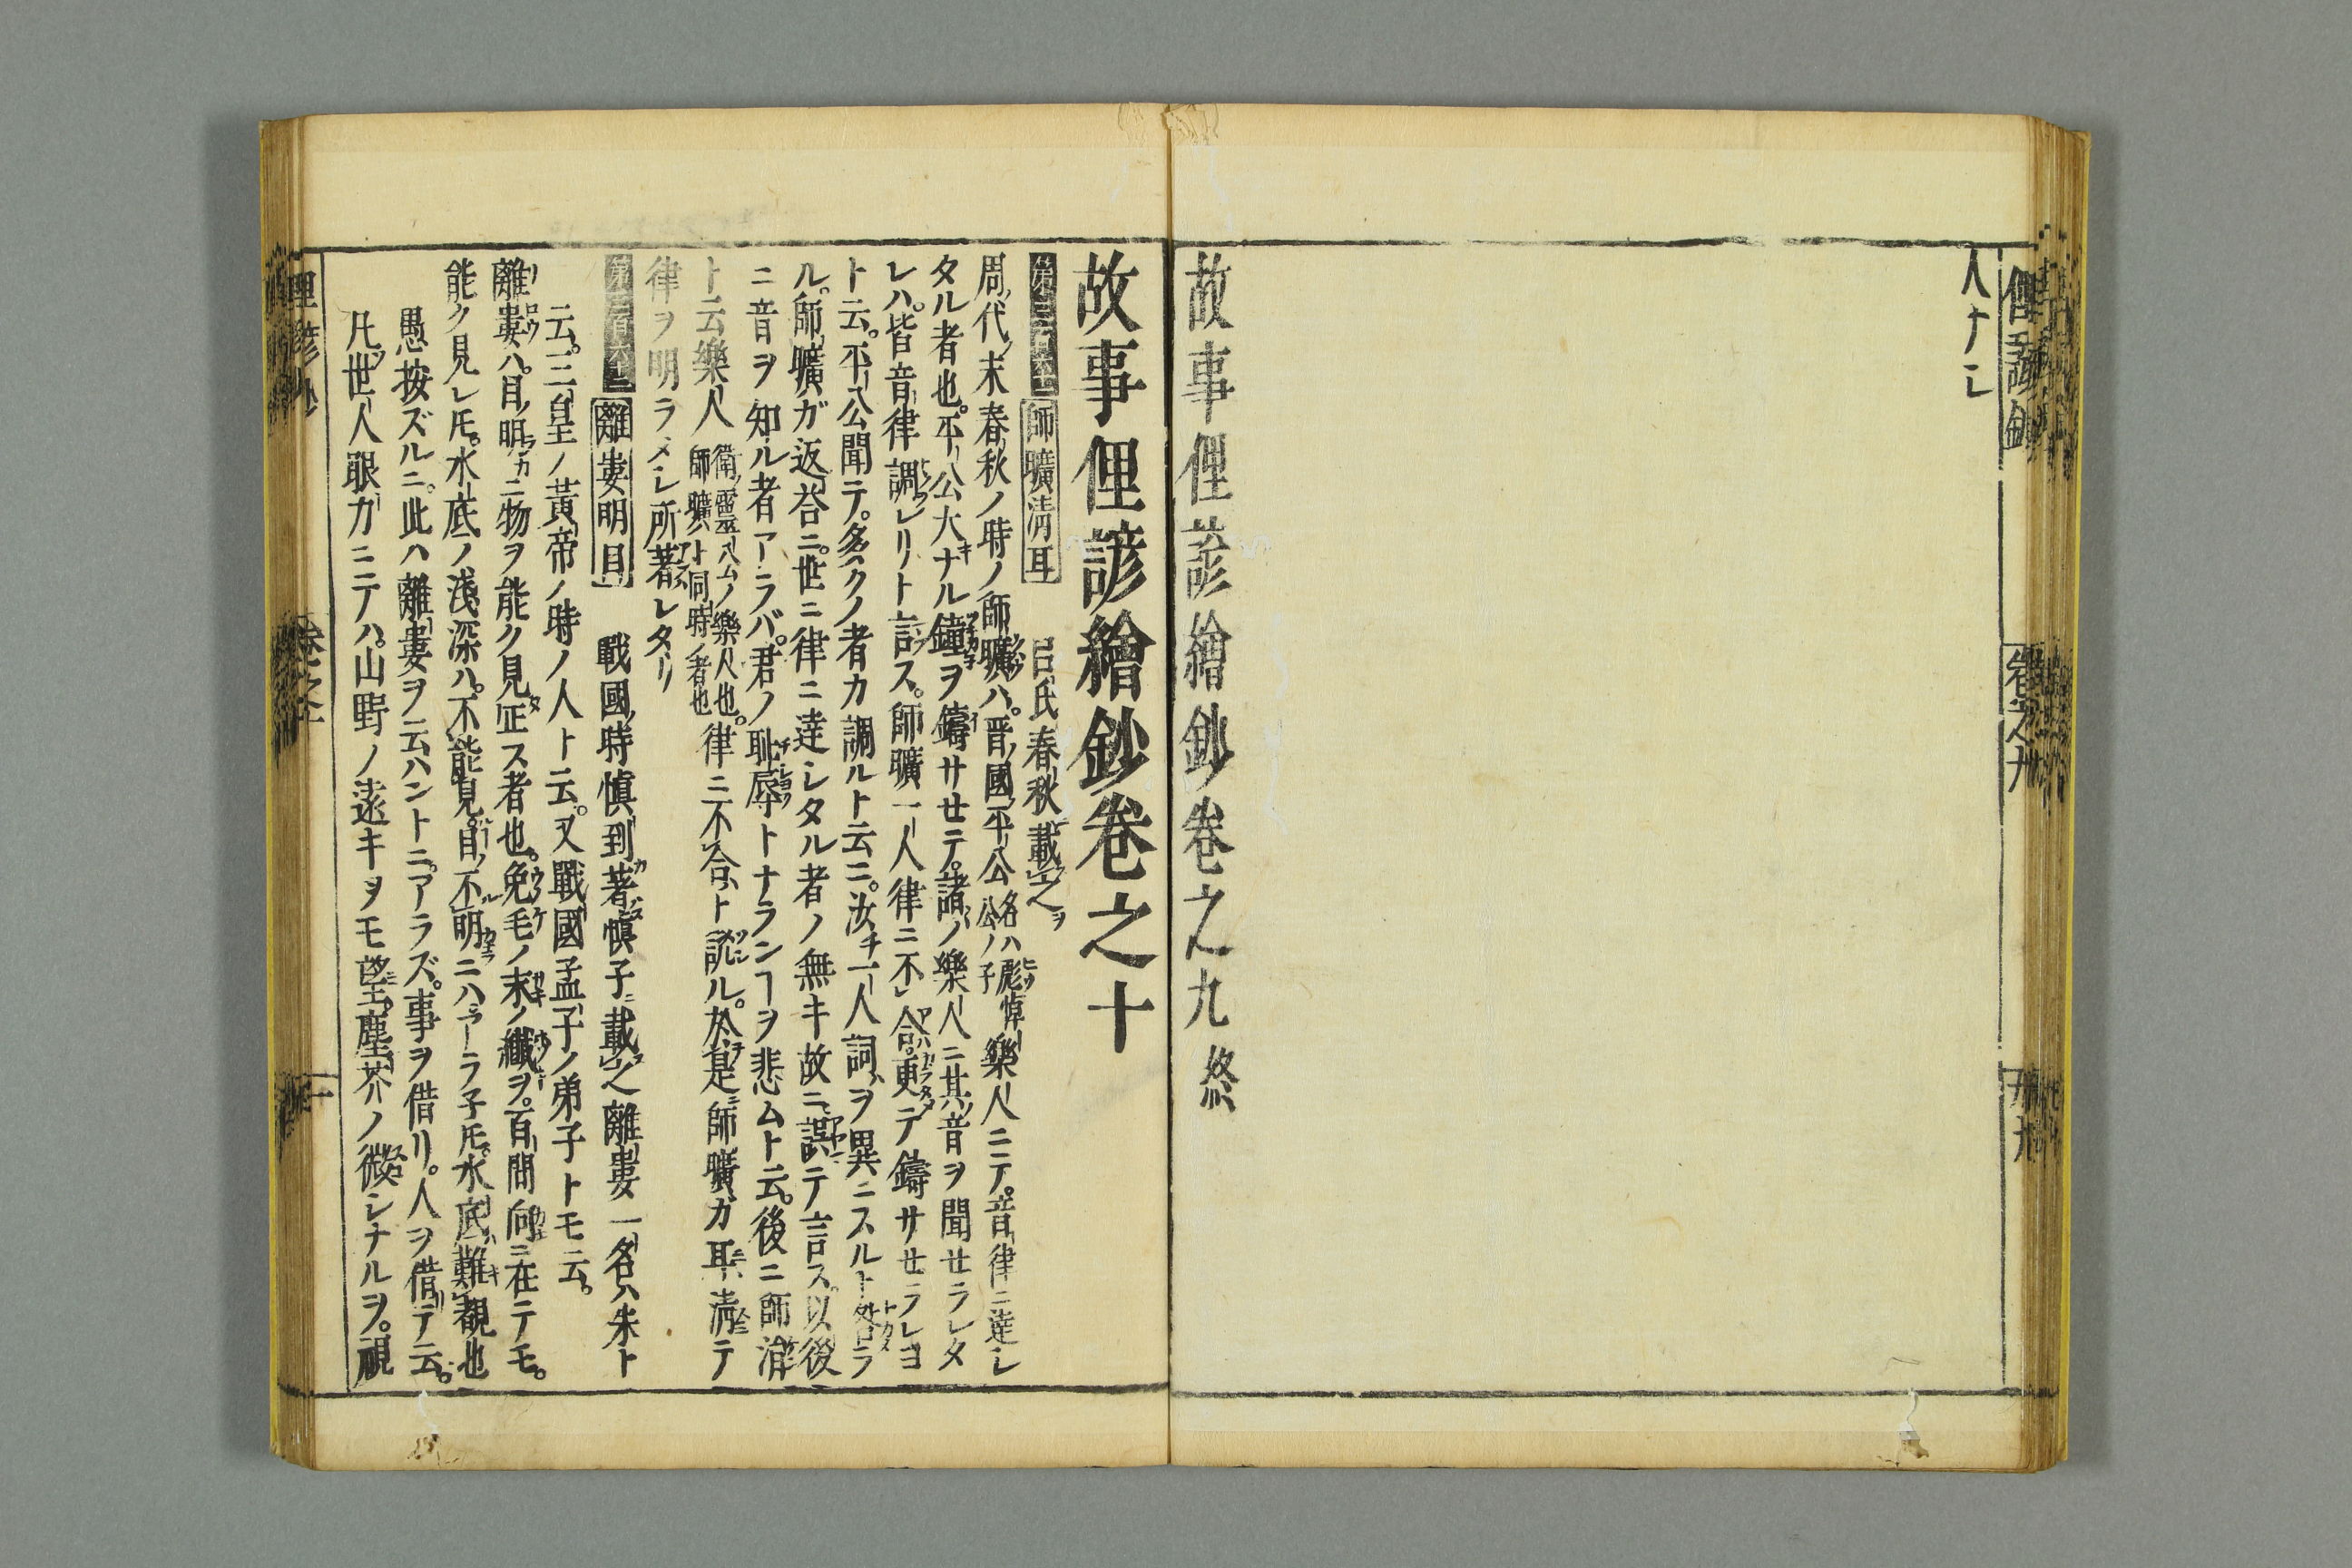 俚諺鈔 卷之九
人ナシ
故事俚諺繪鈔卷之九 終
故事俚諺繪鈔卷之十
師曠清耳 呂氏春秋載之
周代末春秋ノ時ノ師曠ハ。晋國平公名ハ彪悼公ノ子樂人ニテ。音律ニ達シ
タル者也。平公大ナル鐘ヲ鑄サセテ。諸ノ樂人ニ其音ヲ聞セラレタ
レハ。皆音律調レリト言ス。師曠一人律ニ不合。更テ鑄サセラレヨ
ト云。平公聞テ。多クノ者カ調ルト云ニ。汝一人詞ヲ異ニスルト咎ラ
ル。師曠ガ返荅ニ。世ニ律ニ達シタル者ノ無キ故ニ誤テ言ス。以後
ニ音ヲ知ル者アラバ。君ノ耻辱トナランヿヲ悲ムト云。後ニ師涓
ト云樂人衛靈公ノ樂人也。師曠ト同時ノ者也律ニ不合ト訛ル。於是師曠ガ耳清テ
律ヲ明ラメシ所著レタリ
離婁明目 戰國時愼到著愼子載之離婁一名ハ朱ト
云。三皇ノ黃帝ノ時ノ人ト云。又戰國孟子ノ弟子トモ云。
離婁ハ。目明カニ物ヲ能ク見正ス者也。兔毛ノ末ノ纎ヲ。百間向ニ在テモ。
能ク見レ𪜈。水底ノ淺深ハ。不能見。目ノ不明ニハアラ子𪜈。水底難覩也
愚按ズルニ。此ハ離婁ヲ云ハントニアラズ。事ヲ借リ。人ヲ借テ云。
凡世人眼力ニテハ。山野ノ遠キヲモ望。塵芥ノ微シナルヲ。視